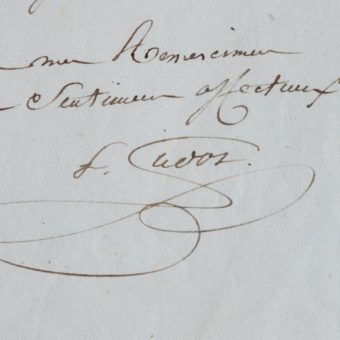 mes Remerciemen
Sentimens affectueux
f. Cudot.